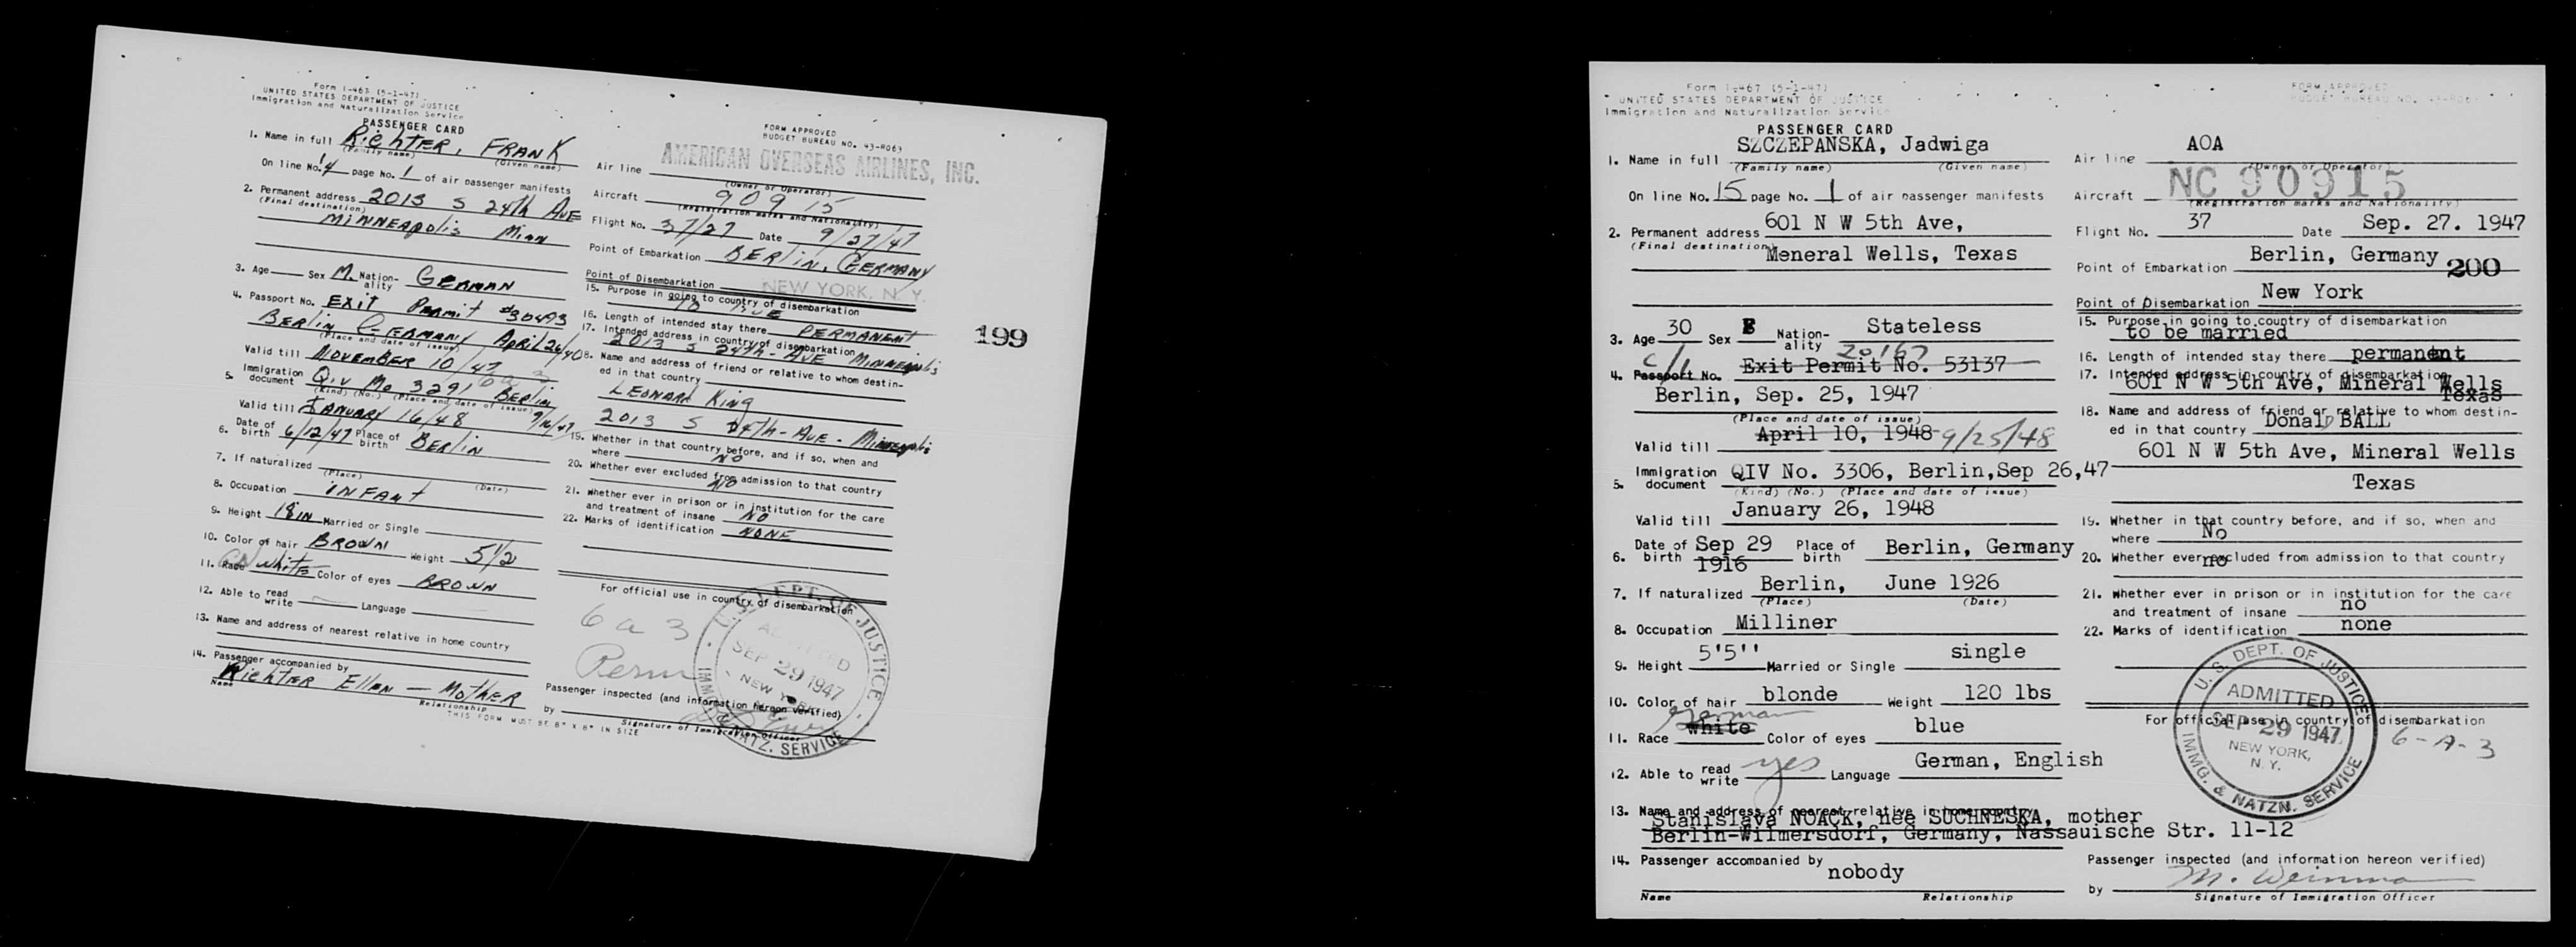 Form I-467 (5-1-47)
UNITED STATES DEPARTMENT OF JUSTICE
Immigration and Naturalization Service
PASSENGER CARD
FORM APPROVED
BUDGET BUREAU NO. 43-R063
1. Name in full RichTER, FRANK
(Family name) (Given name)
On line No. 14 page No. 1 of air passenger manifests
2. Permanent address 2013 S 24th AVE
(Final destination)
MINNEAPOLIS MINN
3. Age Sex M. Nationality GERMAN
4. Passport No. EXIT PERMIT #30493
BERLIN GERMANY APRIL 26/40
(Place and date of issue)
Valid till NOVEMBER 10/47
5. Immigration document Q.I.V No 3291 BERLIN
(Kind) (No.) (Place and date of issue) 9/16/47
Valid till JANUARY 16/48
6. Date of birth 6/12/47 Place of birth BERLIN
7. If naturalized
(Place) (Date)
8. Occupation INFANT
9. Height 18 IN Married or Single
10. Color of hair BROWN Weight 5 1/2
11. Race White Color of eyes BROWN
12. Able to read write Language
13. Name and address of nearest relative in home country
14. Passenger accompanied by
RichTER Ellen — MOTHER
Name Relationship
THIS FORM MUST BE 8" X 8" IN SIZE
Air line AMERICAN OVERSEAS AIRLINES, INC.
(Owner or Operator)
Aircraft 90915
(Registration marks and Nationality)
Flight No. 37/27 Date 9/27/47
Point of Embarkation BERLIN, GERMANY
Point of Disembarkation NEW YORK, N. Y.
15. Purpose in going to country of disembarkation
TO LIVE
16. Length of intended stay there PERMANENT
17. Intended address in country of disembarkation
2013 S 24th-AVE MINNEAPOLIS
18. Name and address of friend or relative to whom destined in that country
LEONARD KING
2013 S 24th-AVE - MINNEAPOLIS
19. Whether in that country before, and if so, when and
where NO
20. Whether ever excluded from admission to that country
NO
21. Whether ever in prison or in institution for the care
and treatment of insane NO
22. Marks of identification NONE
For official use in country of disembarkation
6 a 3
Perm
U. S. DEPT. OF JUSTICE
ADMITTED
SEP 29 1947
NEW YORK
IMMG. & NATZ. SERVICE
Passenger inspected (and information hereon verified)
by
Signature of Immigration Officer
199
Form I-467 (5-1-47)
UNITED STATES DEPARTMENT OF JUSTICE
Immigration and Naturalization Service
PASSENGER CARD
FORM APPROVED
BUDGET BUREAU NO. 43-R063
1. Name in full SZCZEPANSKA, Jadwiga
(Family name) (Given name)
On line No. 15 page No. 1 of air passenger manifests
2. Permanent address 601 N W 5th Ave,
(Final destination)
Meneral Wells, Texas
3. Age 30 Sex F Nationality Stateless
C/I 20167
4. Passport No. Exit Permit No. 53137
Berlin, Sep. 25, 1947
(Place and date of issue)
Valid till April 10, 1948 9/25/48
5. Immigration document QIV No. 3306, Berlin,Sep 26,47
(Kind) (No.) (Place and date of issue)
Valid till January 26, 1948
6. Date of birth Sep 29 1916 Place of birth Berlin, Germany
7. If naturalized Berlin, June 1926
(Place) (Date)
8. Occupation Milliner
9. Height 5'5'' Married or Single single
10. Color of hair blonde Weight 120 lbs
German
11. Race White Color of eyes blue
12. Able to read write yes Language German, English
13. Name and address of nearest relative in home country
Stanislava NOACK, nee SUCHNESKA, mother
Berlin-Wilmersdorf, Germany, Nassauische Str. 11-12
14. Passenger accompanied by nobody
Name Relationship
Air line AOA
(Owner or Operator)
Aircraft NC 90915
(Registration marks and Nationality)
Flight No. 37 Date Sep. 27. 1947
Point of Embarkation Berlin, Germany 200
Point of Disembarkation New York
15. Purpose in going to country of disembarkation
to be married
16. Length of intended stay there permanent
17. Intended address in country of disembarkation
601 N W 5th Ave, Mineral Wells
Texas
18. Name and address of friend or relative to whom destined in that country Donald BALL
601 N W 5th Ave, Mineral Wells
Texas
19. Whether in that country before, and if so, when and
where No
20. Whether ever excluded from admission to that country
no
21. Whether ever in prison or in institution for the care
and treatment of insane no
22. Marks of identification none
U. S. DEPT. OF JUSTICE
ADMITTED
SEP 29 1947
NEW YORK,
N. Y.
IMMG. & NATZN. SERVICE
For official use in country of disembarkation
6-A-3
Passenger inspected (and information hereon verified)
by M. Weinman
Signature of Immigration Officer